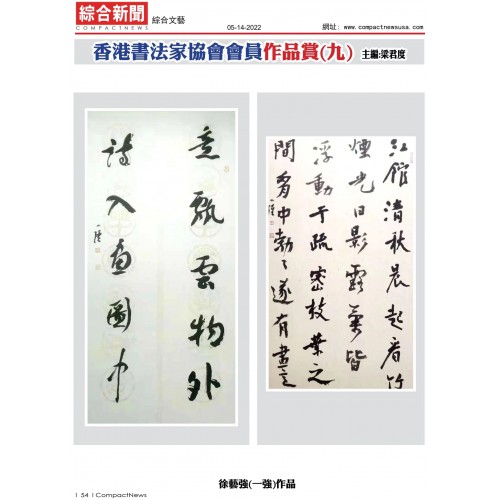 綜合新聞
綜合文藝
05-14-2022
網址: www.compactnewsusa.com
香港書法家協會會員作品賞(九)
主編:梁君度
意飄雲物外
詩入畫圖中
一強
江館清秋晨起看竹
煙光日影露氣皆
浮動于疏密枝葉之
間胸中勃々遂有畫意
一強
徐藝強(一強)作品
154 | CompactNews